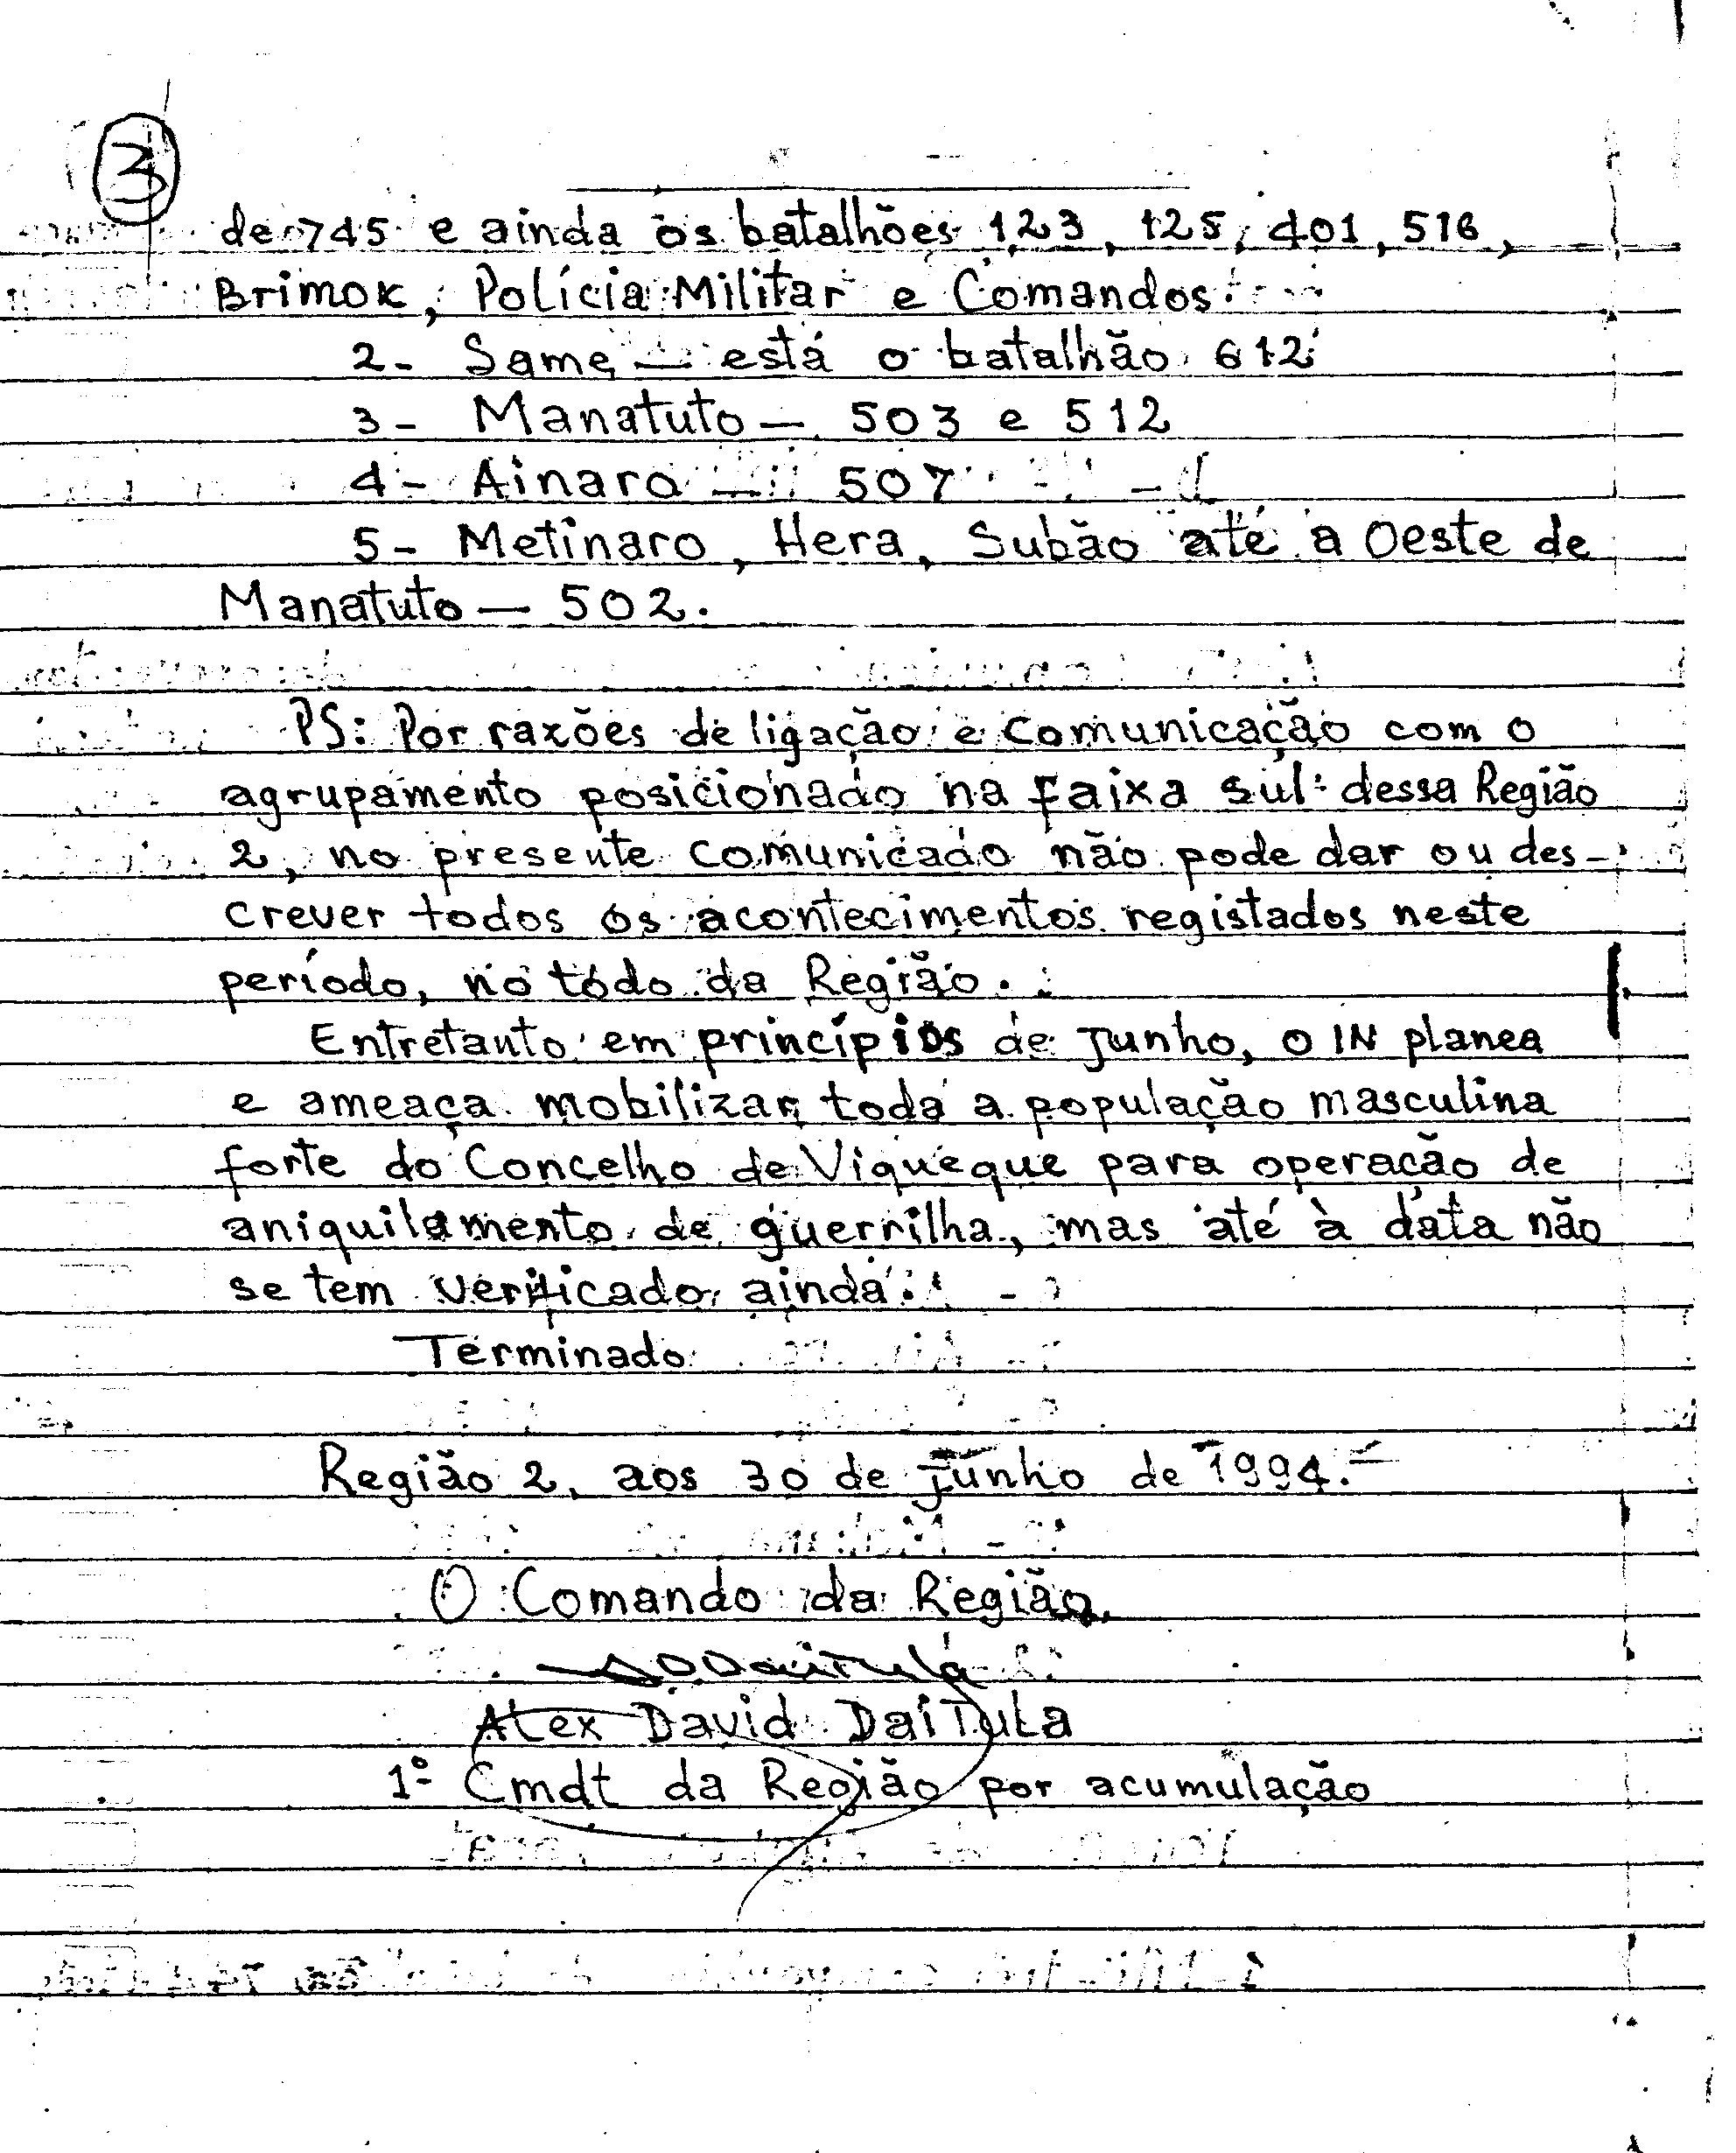 3
de 745 e ainda os batalhões 123, 125, 401, 516,
Brimok, Polícia Militar e Comandos.
2- Same — está o batalhão 612
3- Manatuto — 503 e 512
4- Ainaro — 507
5- Metinaro, Hera, Subão até a Oeste de
Manatuto — 502.
PS: Por razões de ligação e comunicação com o
agrupamento posicionado na faixa sul dessa Região
2, no presente comunicado não pode dar ou des-
crever todos os acontecimentos registados neste
período, no todo da Região.
Entretanto em princípios de Junho, o IN planea
e ameaça mobilizar toda a população masculina
forte do Concelho de Viqueque para operação de
aniquilamento de guerrilha, mas até à data não
se tem verificado ainda.
Terminado
Região 2, aos 30 de Junho de 1994.-
O Comando da Região,
Alex David Daitula
1º Cmdt da Região por acumulação